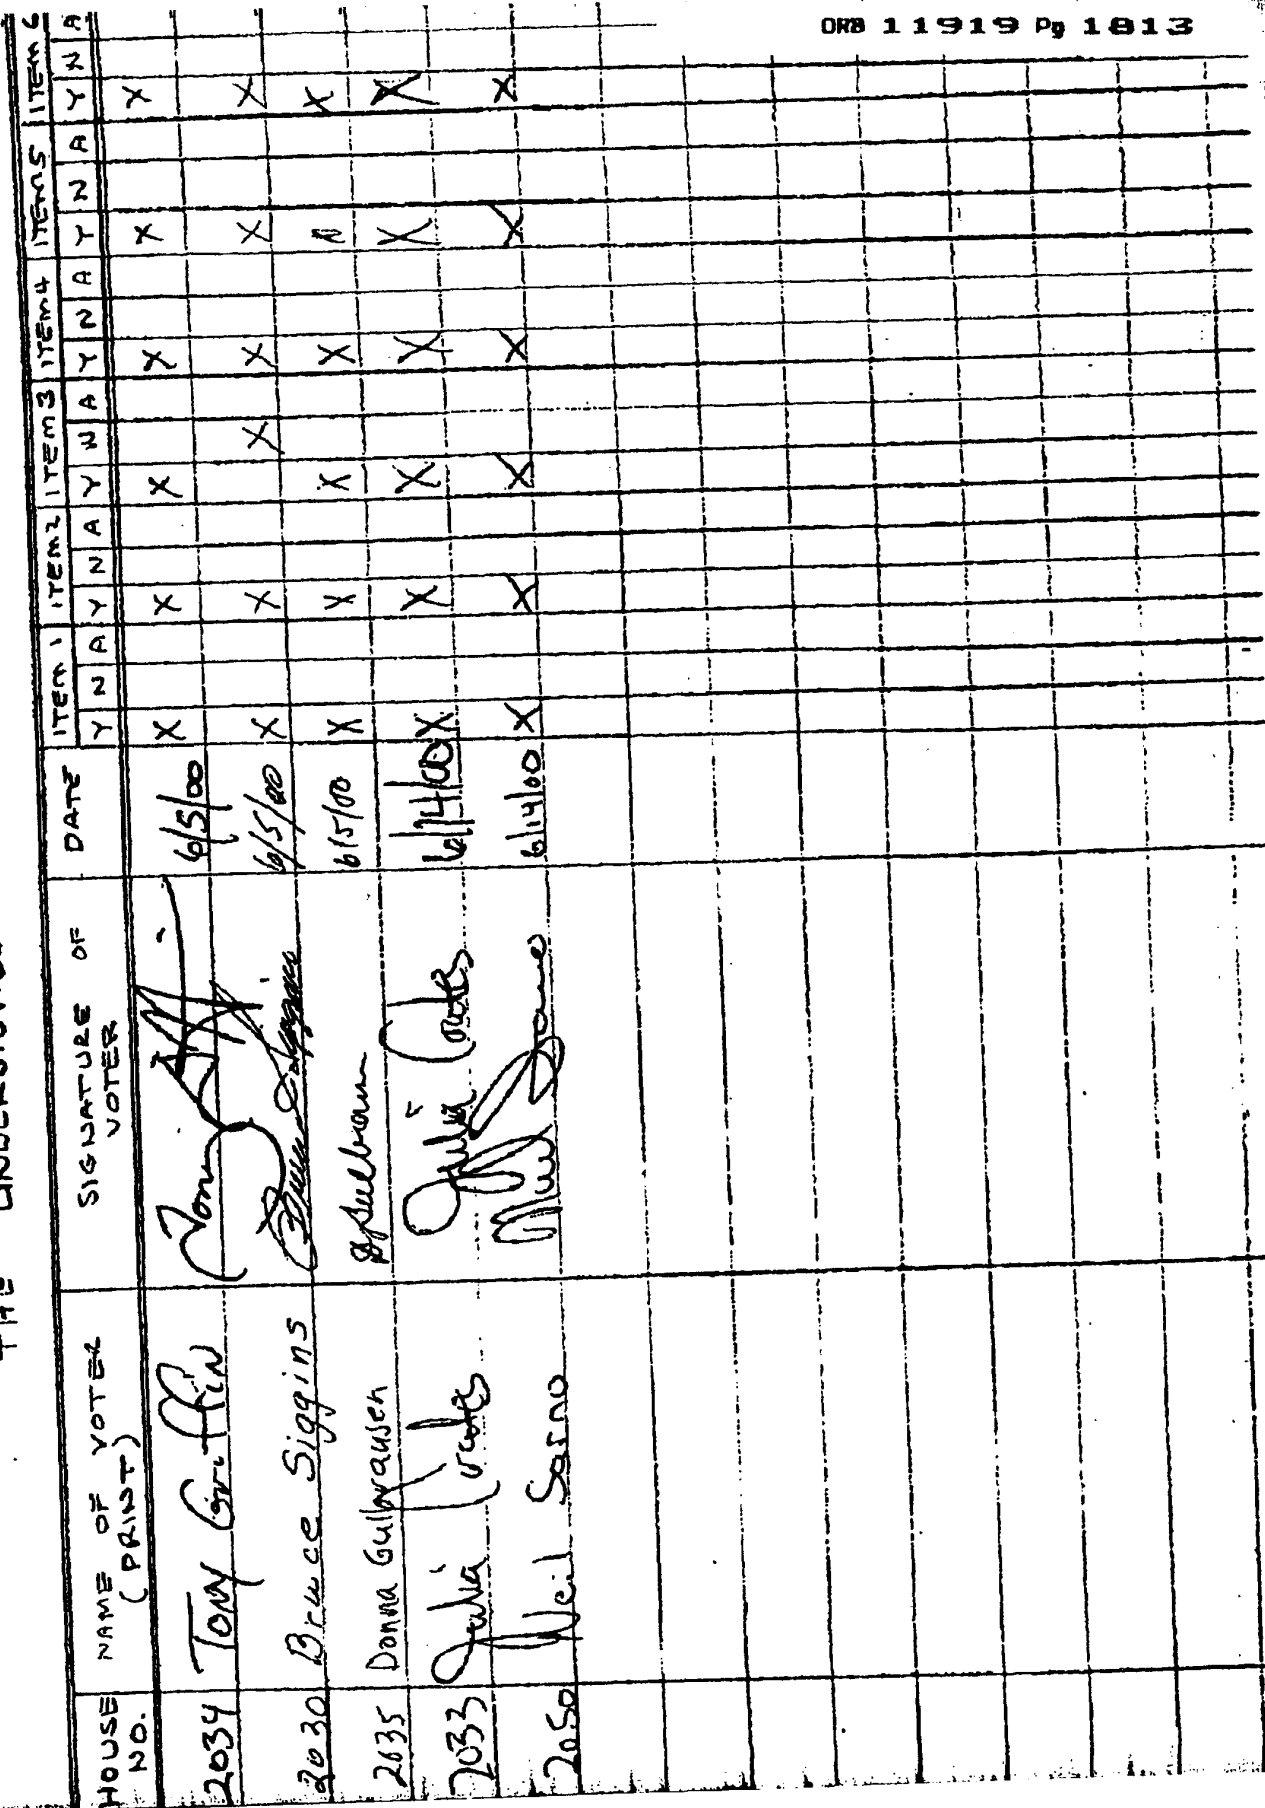 ORB 11919 Pg 1813
THE UNDERSIGNED
HOUSE NO. NAME OF VOTER (PRINT) SIGNATURE OF VOTER DATE ITEM 1 ITEM 2 ITEM 3 ITEM 4 ITEM 5 ITEM 6
Y N A Y N A Y N A Y N A Y N A Y N A
2034 Tony Griffin 6/5/00 X X X X X X
2030 Bruce Siggins Bruce Siggins 6/5/00 X X X X X X
2035 Donna Gulbrausen 6/5/00 X X X X X
2033 Julia Coates Julia Coates 6/14/00 X X X X X X
2050 Neil Sarno 6/14/00 X X X X X X